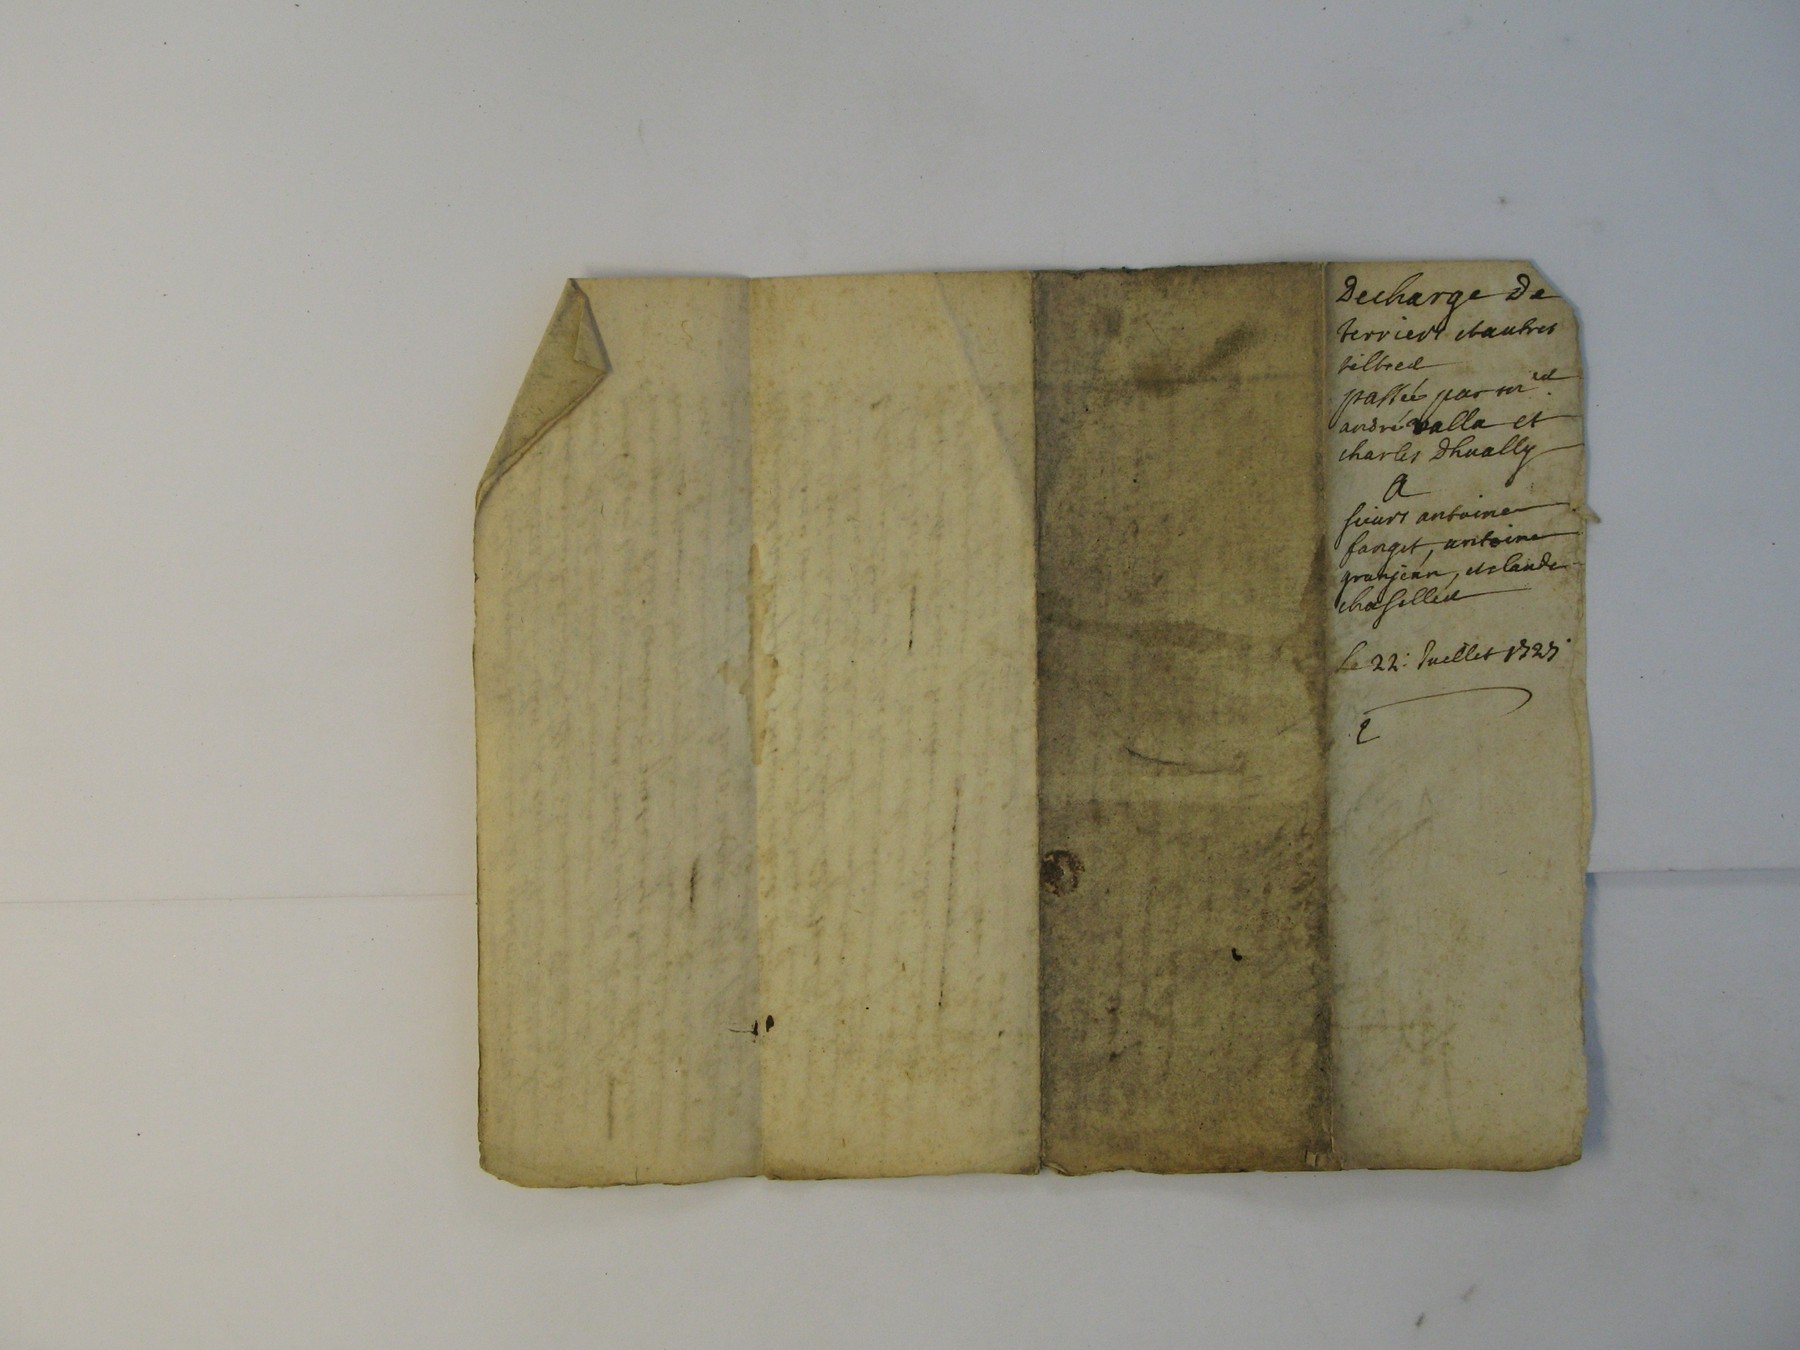 Decharge De
terriers et autres
tiltres
passée par mres
andré valla et
charles Dhually
A
sieurs antoine
fanget, antoine
granjean, et claude
chasselles
Le 22: Juellet 1727